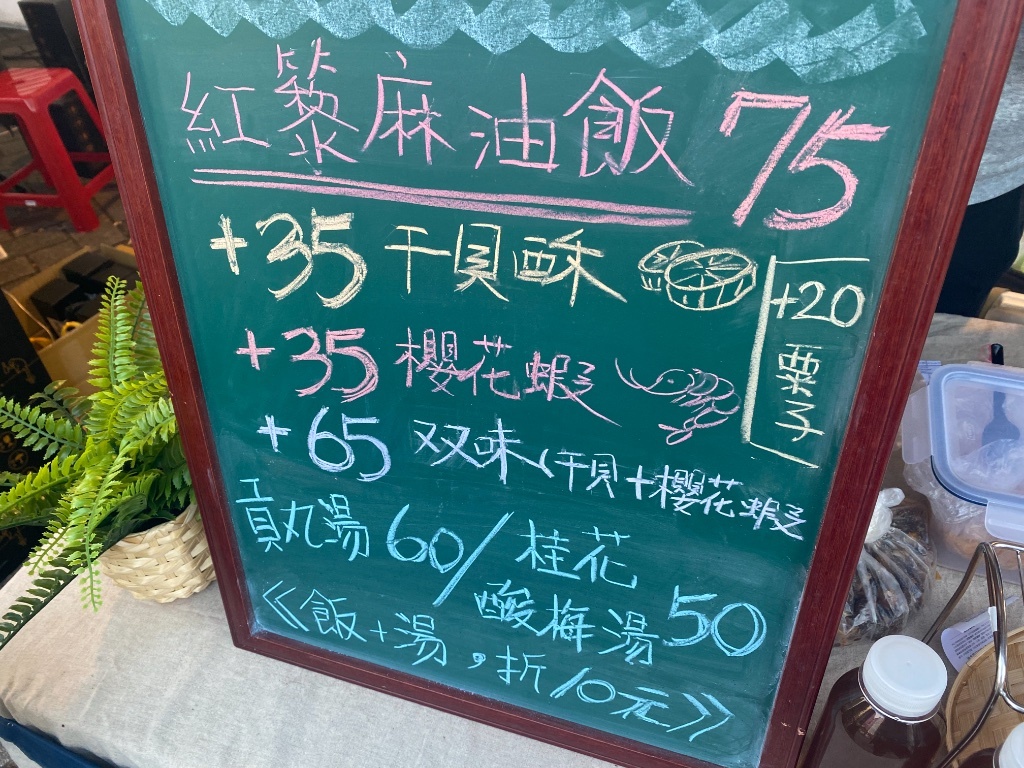 紅藜麻油飯 75
+35 干貝酥
+20 栗子
+35 櫻花蝦
+65 双味(干貝+櫻花蝦)
貢丸湯 60/桂花酸梅湯 50
《飯+湯,折10元》